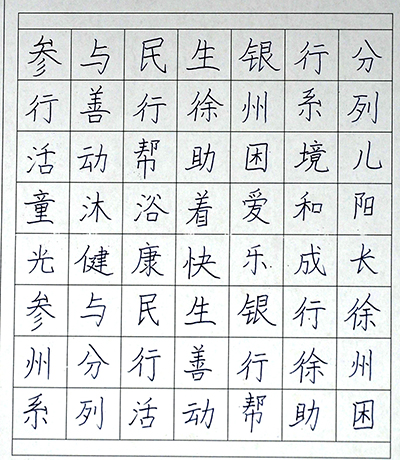 参与民生银行分
行善行徐州系列
活动帮助困境儿
童沐浴着爱和阳
光健康快乐成长
参与民生银行徐
州分行善行徐州
系列活动帮助困